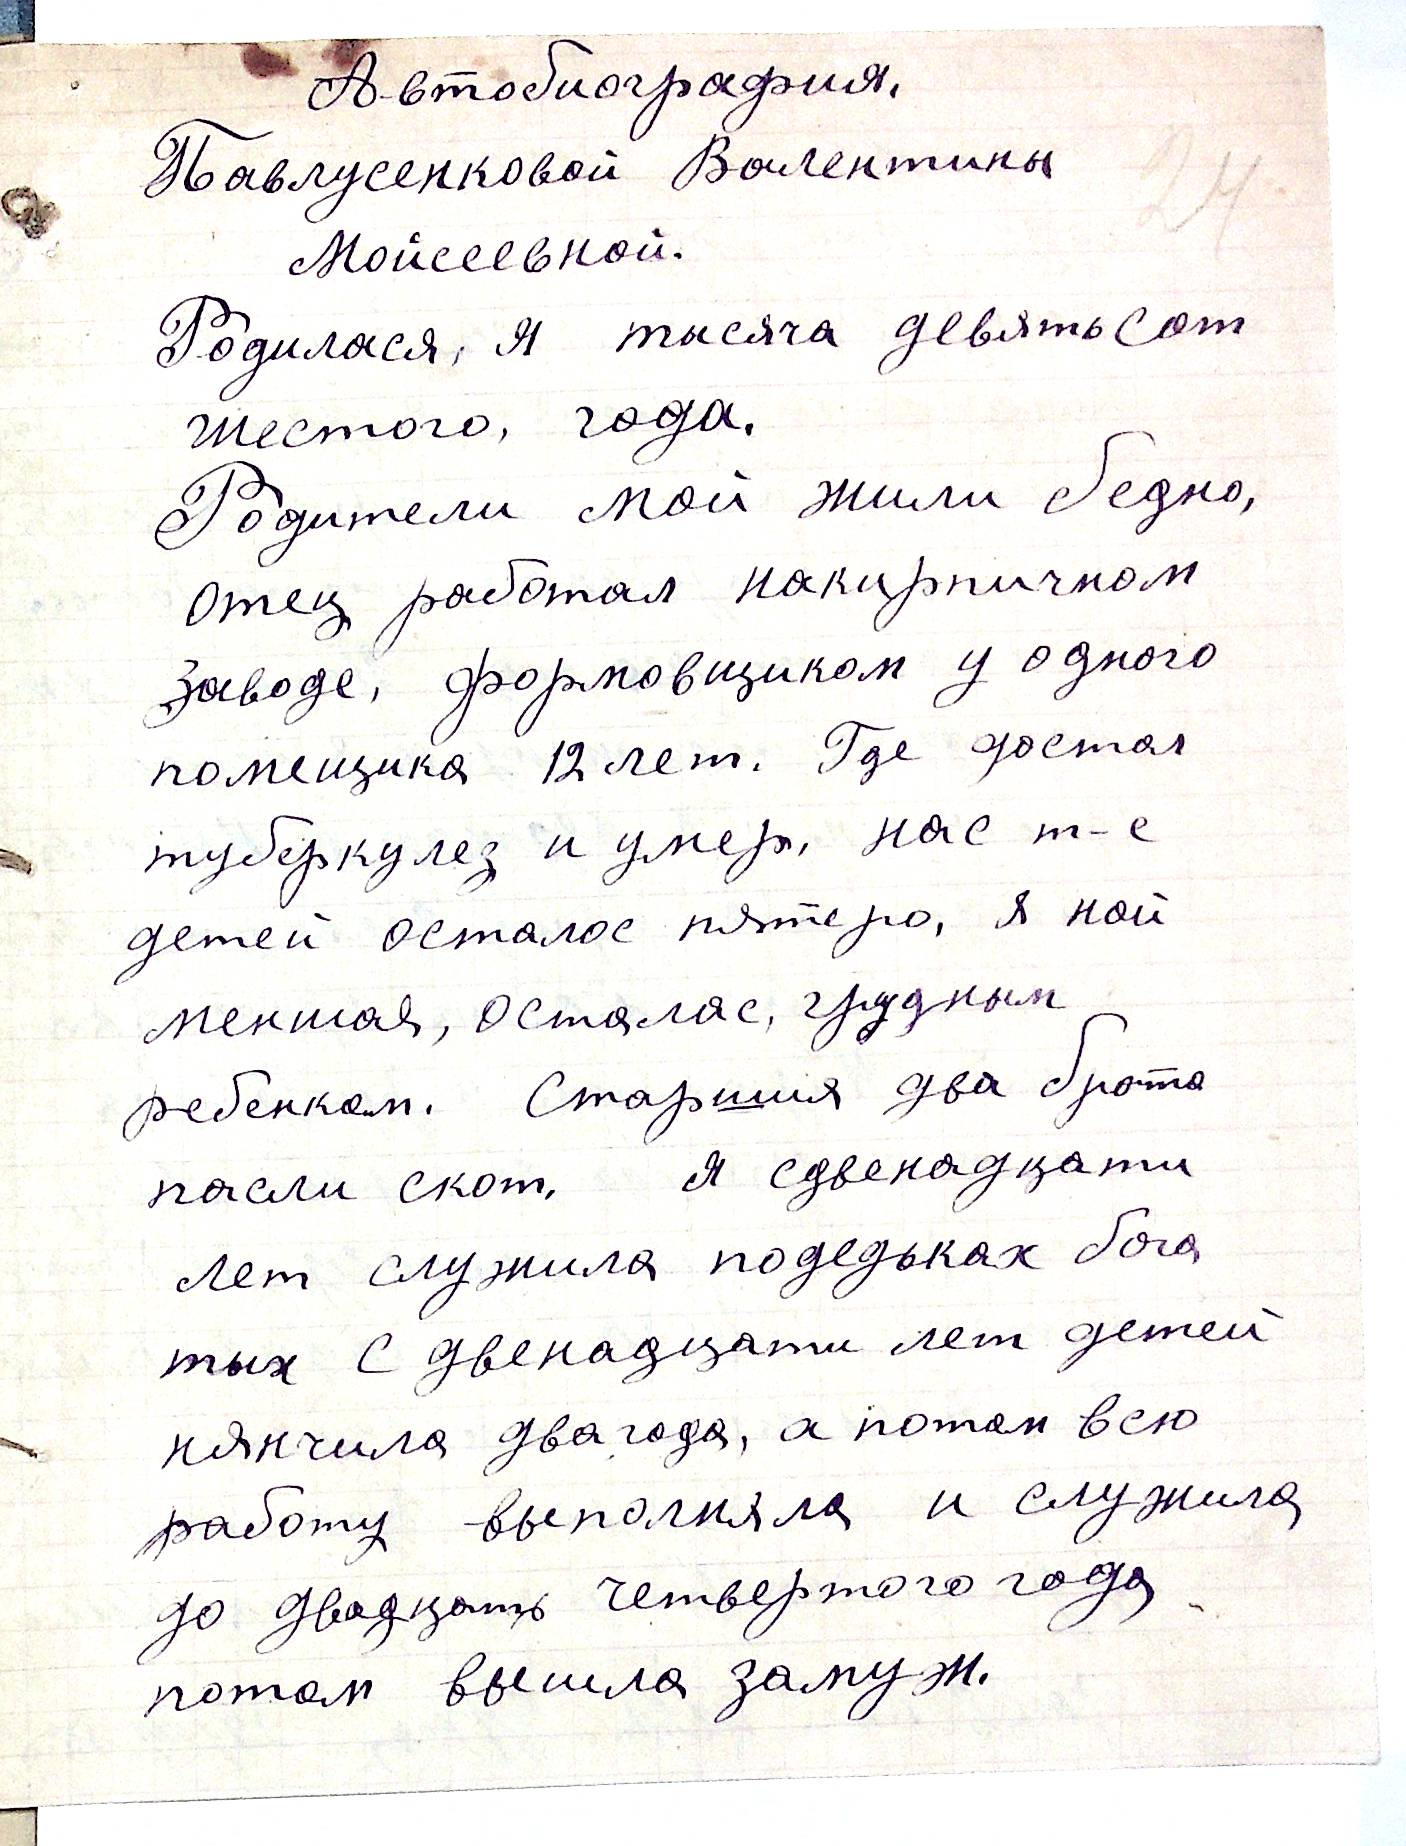 Автобиография.
24
Павлусенковой Валентины
Мойсеевной.
Родилася, я тысяча девятьсот
шестого, года.
Родители мой жили бедно,
отец работал накирпичном
заводе, формовщиком у одного
помещика 12 лет. Где достал
туберкулез и умер, нас т-е
детей осталос пятеро, я най
меншая, осталас, грудным
ребенкам. Старшия два брата
пасли скот. я сдвенадцати
лет служила подедьках бога
тых с двенадцати лет детей
нянчила двагода, а потом всю
работу выполняла и служила
до двадцать четвертого года
потом вышла замуж.